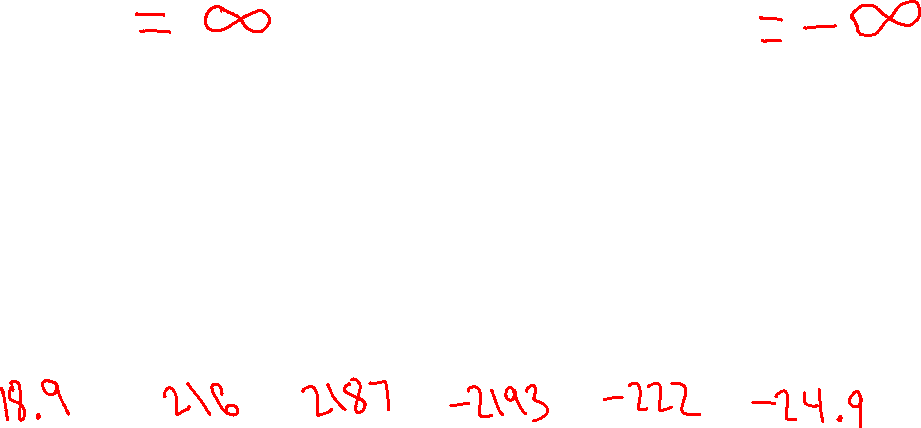 = ∞ = - ∞
18.9 216 2187 -2193 -222 -24.9